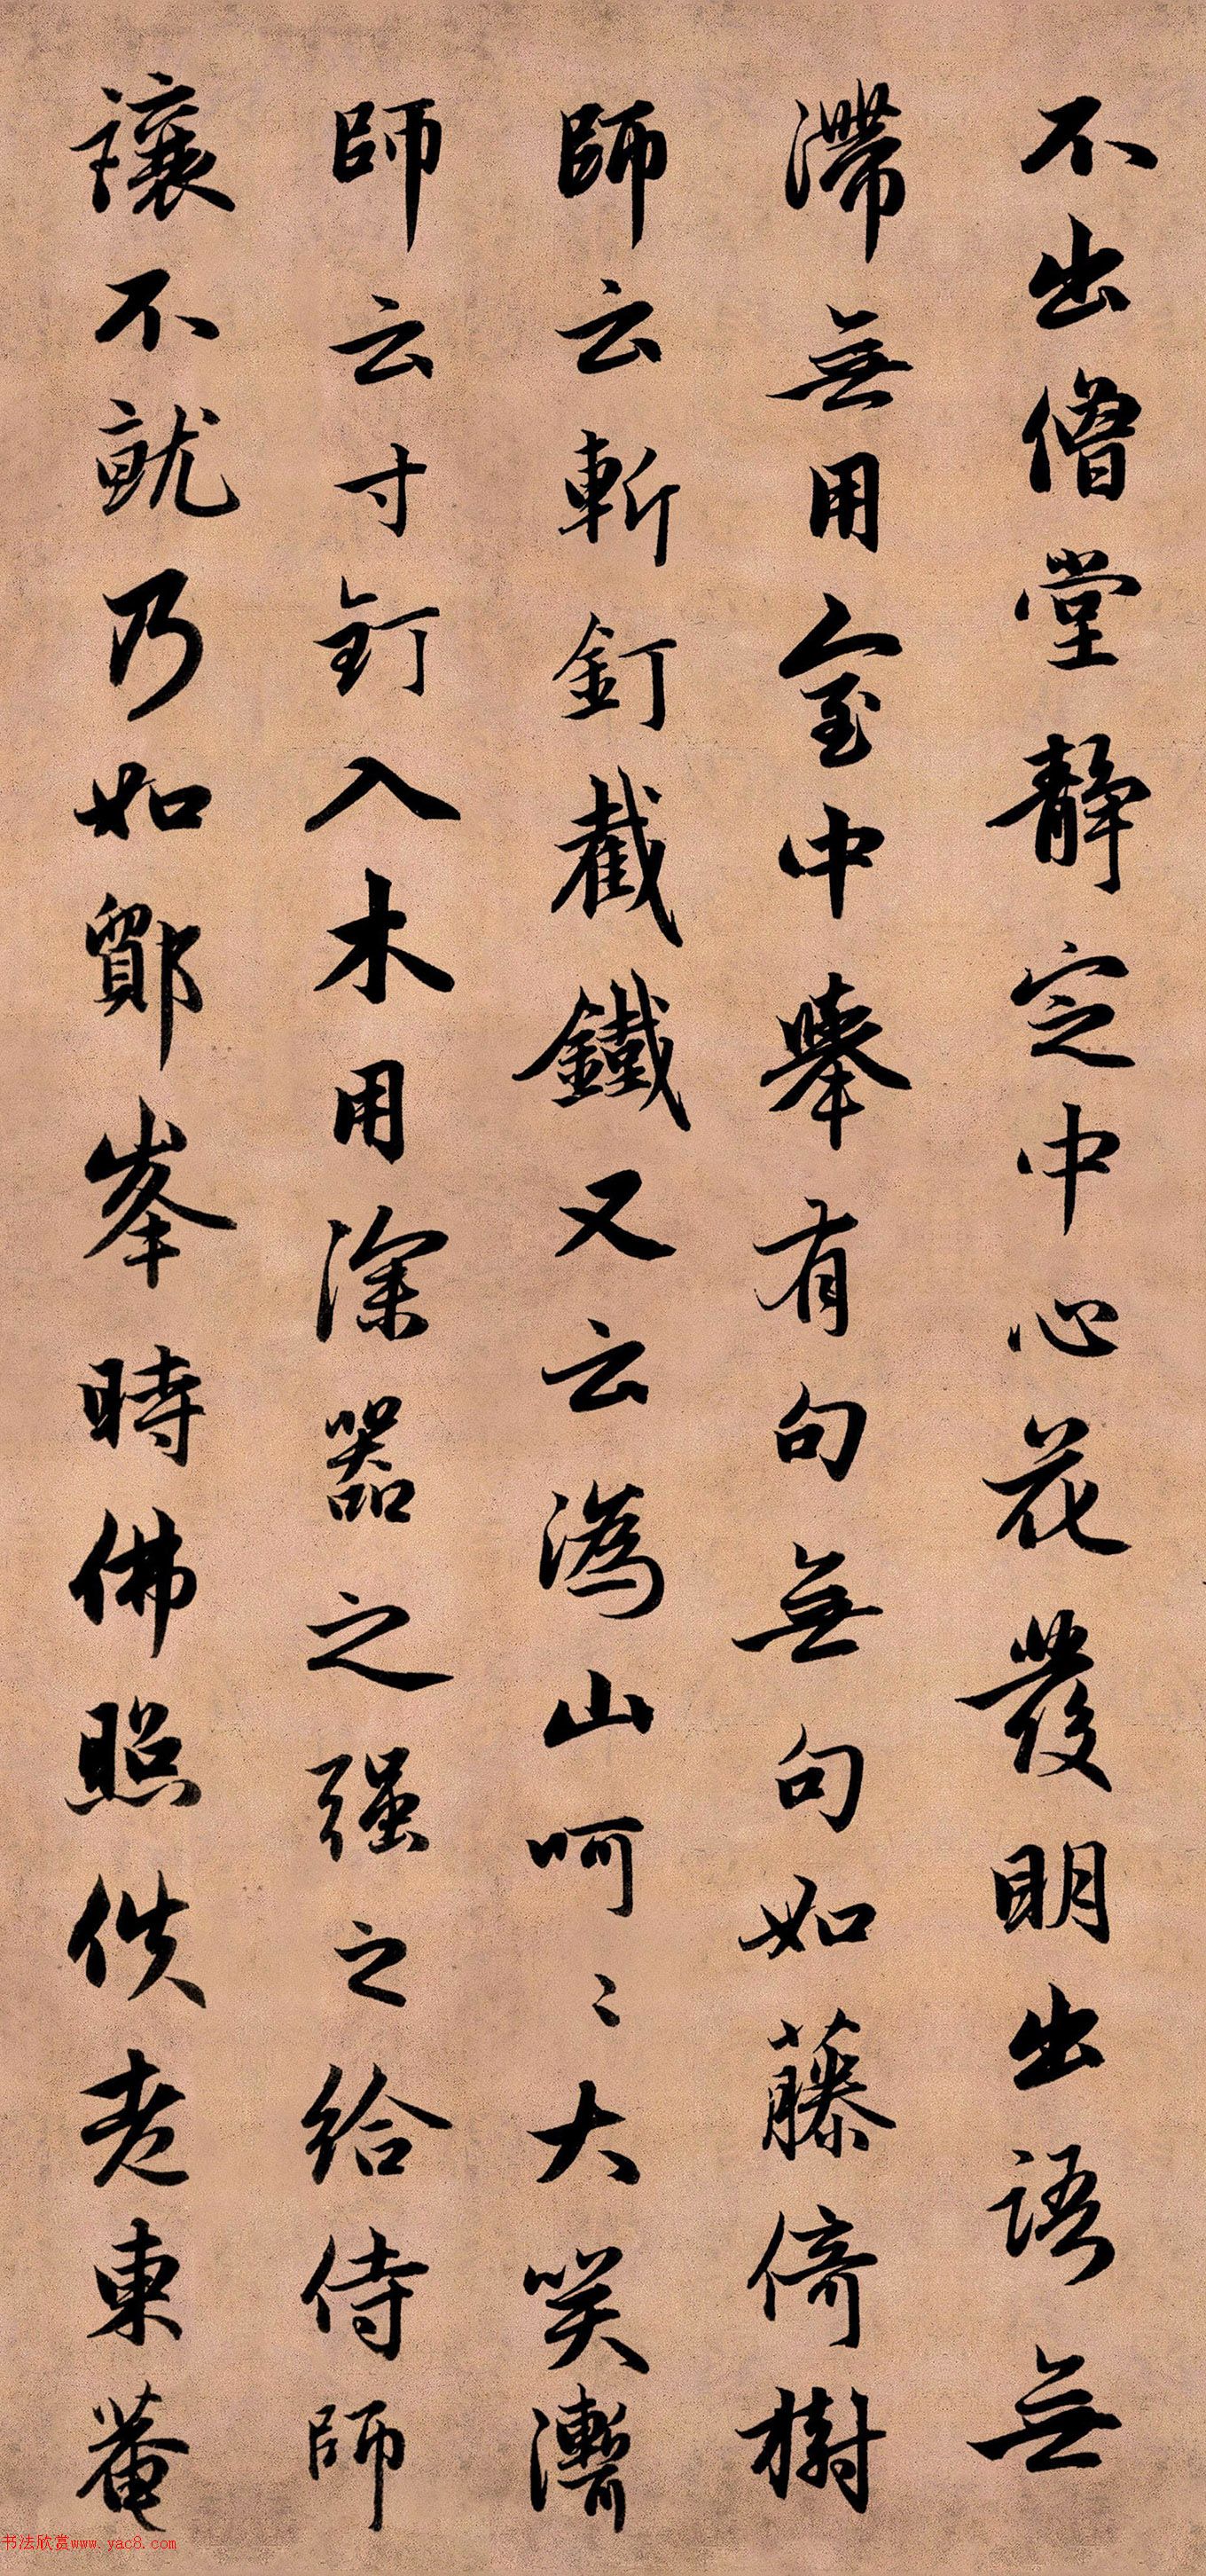 不出僧堂靜定中心花發明出語無
滯無用室中舉有句無句如藤倚樹
師云斬釘截鐵又云溈山呵〻大笑漸
師云寸釘入木用深器之强之給侍師
讓不就乃如鄮峯時佛照佚老東菴
书法欣赏www.yac8.com